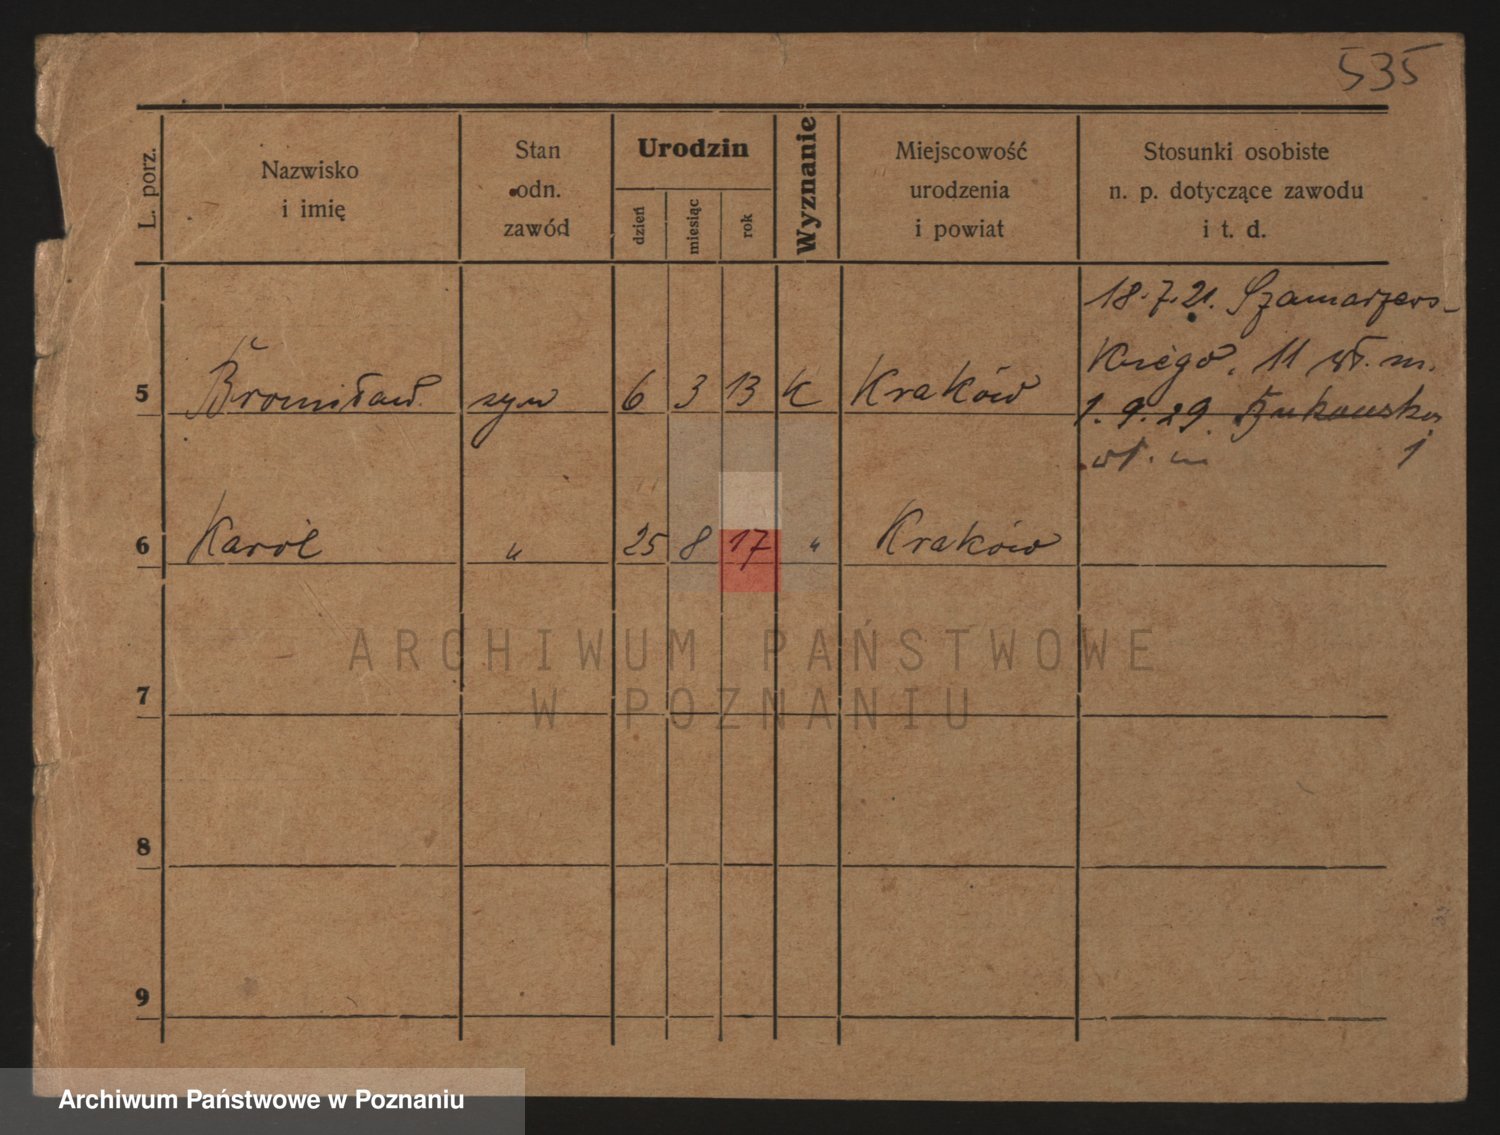 535
L. porz.
Nazwisko
i imię
Stan
odn.
zawód
Urodzin
dzień
miesiąc
rok
Wyznanie
Miejscowość
urodzenia
i powiat
Stosunki osobiste
n. p. dotyczące zawodu
i t. d.
18.7.21. Szamarzews-
kiego. 11 wł. m.
5 Bronisław syn 6 3 13 K Kraków
1.9.29. Żukowska
wł. m 1
6 Karol " 25 8 17 " Kraków
ARCHIWUM PAŃSTWOWE
W POZNANIU
7
8
9
Archiwum Państwowe w Poznaniu